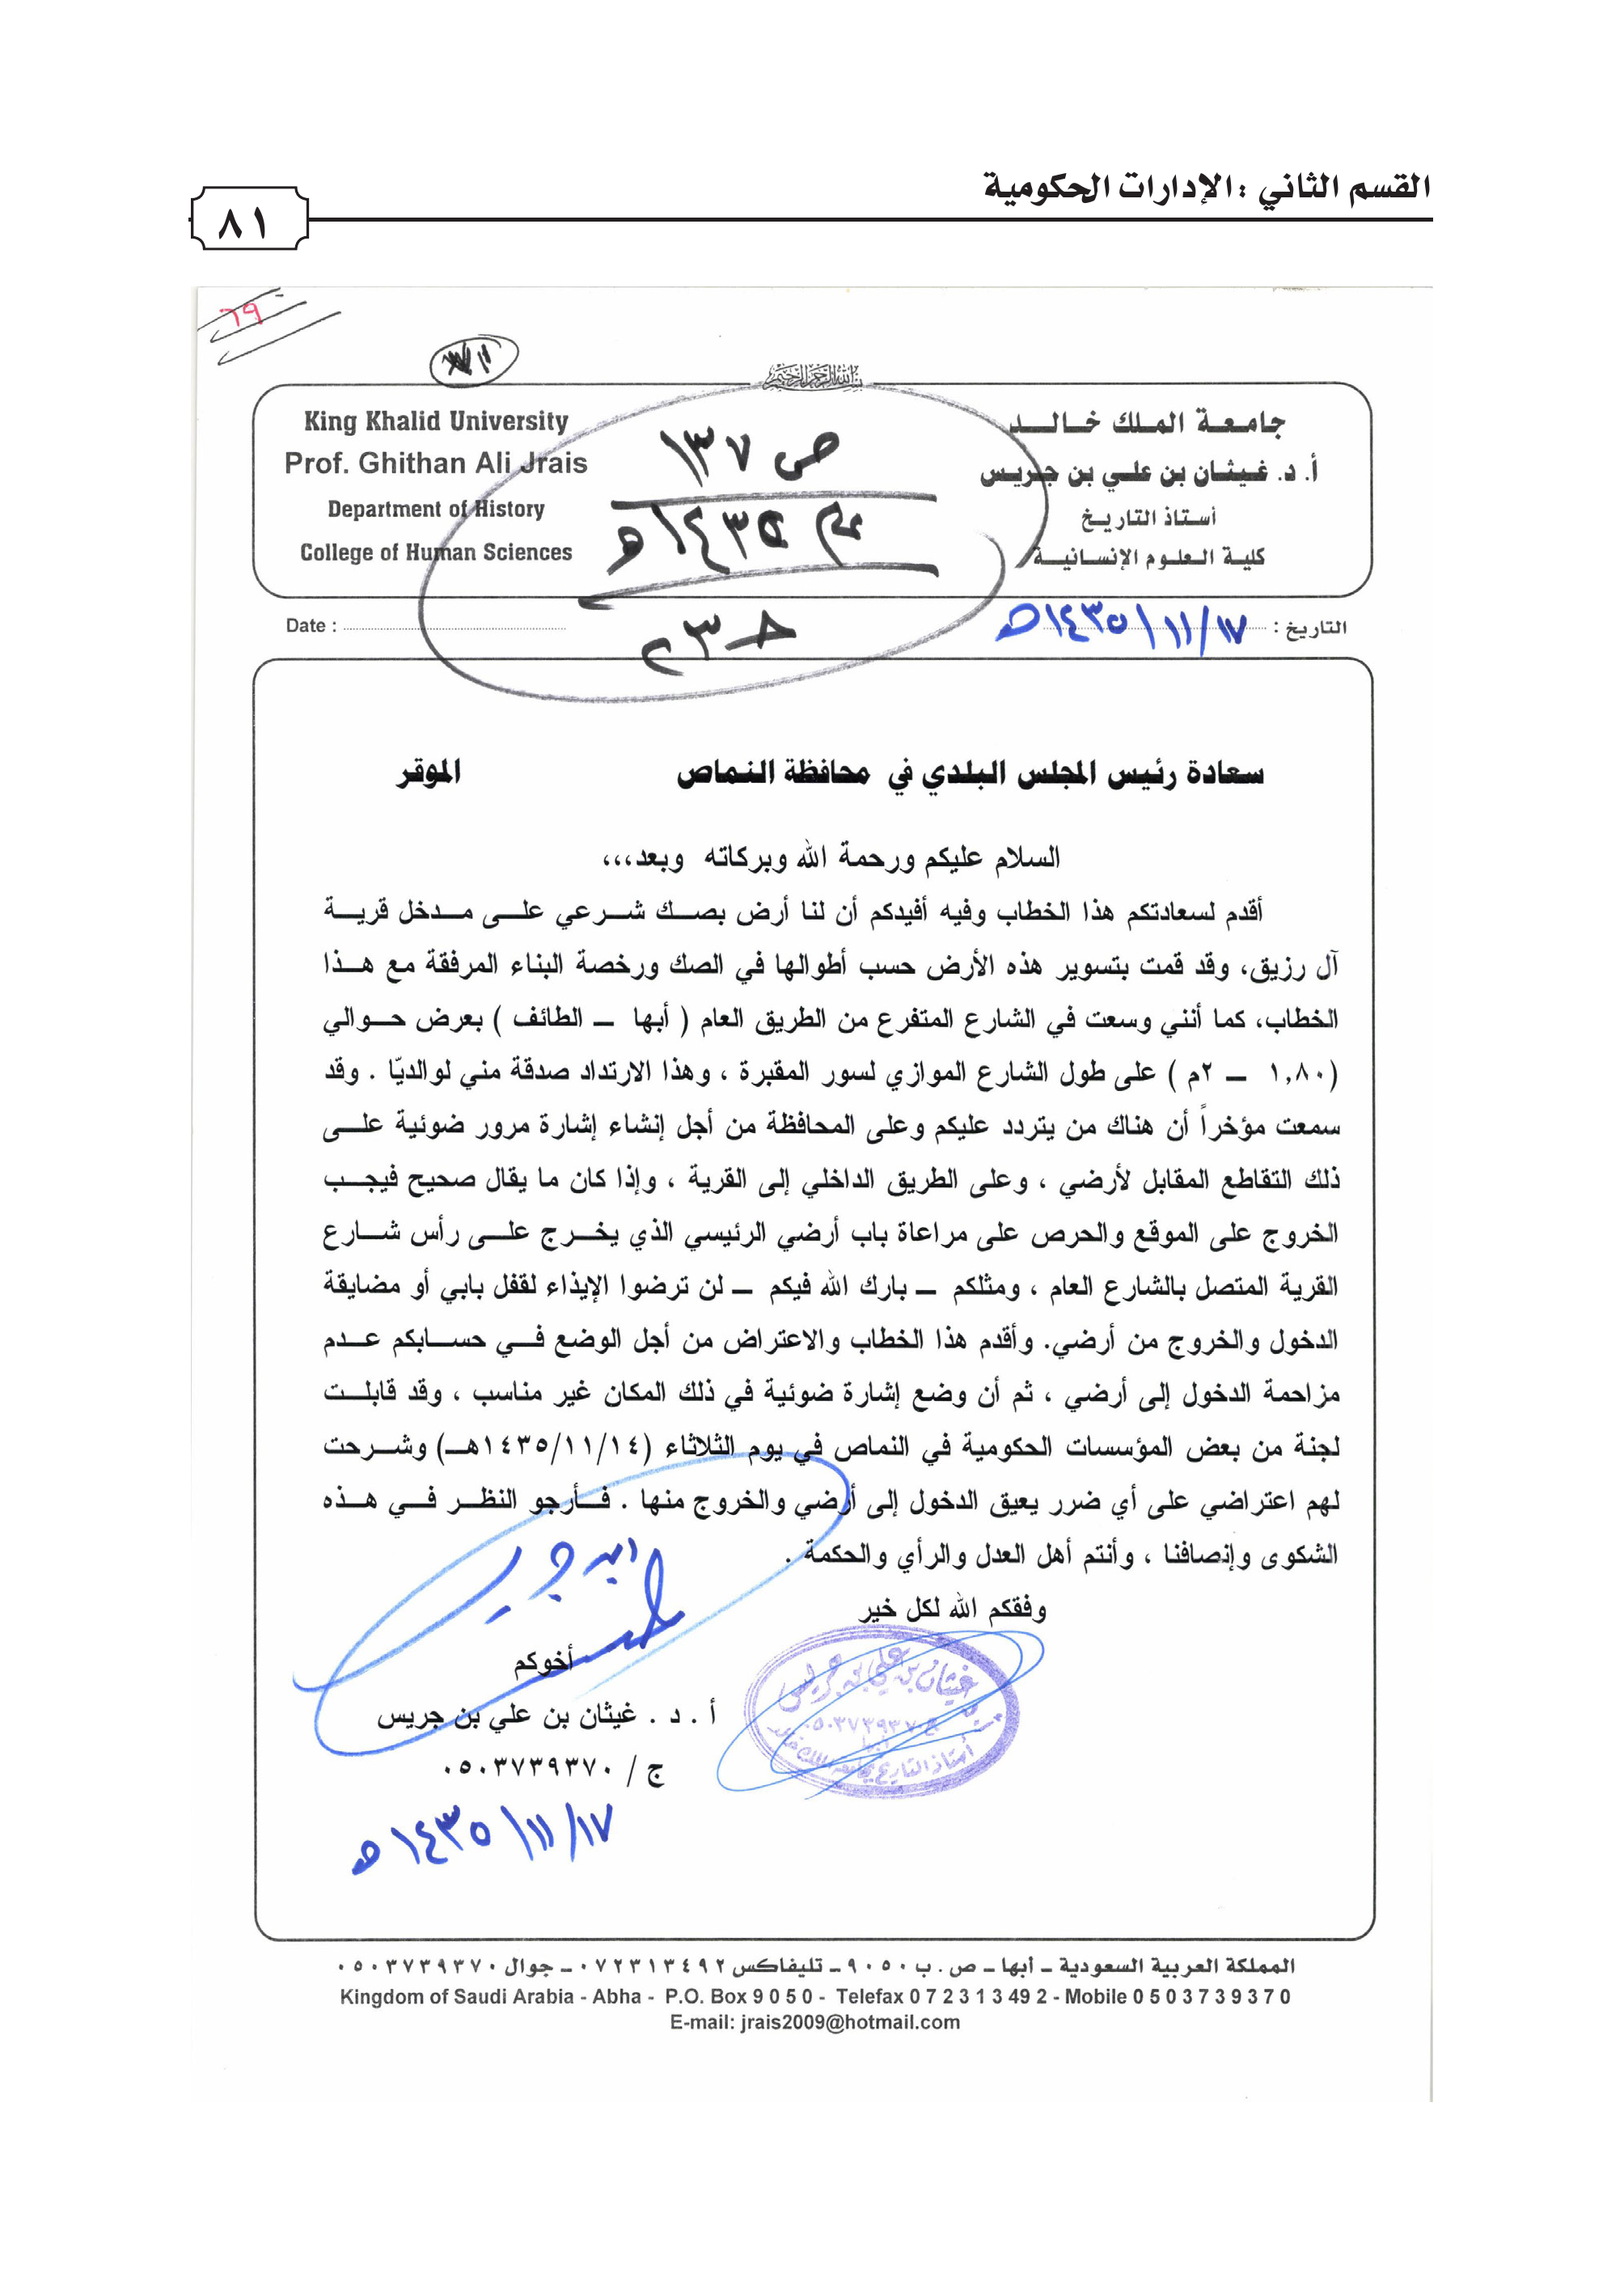 القسم الثاني : الإدارات الحكومية
٨١
٦٩
بسم الله الرحمن الرحيم
جامعة الملك خالد
أ. د. غيثان بن علي بن جريس
أستاذ التاريخ
كلية العلوم الإنسانية
King Khalid University
Prof. Ghithan Ali Jrais
Department of History
College of Human Sciences
ص ١٣٧
١٤٣٥هـ
التاريخ : ١٤٣٥/١١/١٧هـ
Date :
سعادة رئيس المجلس البلدي في محافظة النماص الموقر
السلام عليكم ورحمة الله وبركاته وبعد،،،
أقدم لسعادتكم هذا الخطاب وفيه أفيدكم أن لنا أرض بصك شرعي على مدخل قرية
آل رزيق، وقد قمت بتسوير هذه الأرض حسب أطوالها في الصك ورخصة البناء المرفقة مع هذا
الخطاب، كما أنني وسعت في الشارع المتفرع من الطريق العام ( أبها ــ الطائف ) بعرض حوالي
(١,٨٠ ــ ٢م ) على طول الشارع الموازي لسور المقبرة ، وهذا الارتداد صدقة مني لوالديّا . وقد
سمعت مؤخراً أن هناك من يتردد عليكم وعلى المحافظة من أجل إنشاء إشارة مرور ضوئية على
ذلك التقاطع المقابل لأرضي ، وعلى الطريق الداخلي إلى القرية ، وإذا كان ما يقال صحيح فيجب
الخروج على الموقع والحرص على مراعاة باب أرضي الرئيسي الذي يخرج على رأس شارع
القرية المتصل بالشارع العام ، ومثلكم ــ بارك الله فيكم ــ لن ترضوا الإيذاء لقفل بابي أو مضايقة
الدخول والخروج من أرضي. وأقدم هذا الخطاب والاعتراض من أجل الوضع في حسابكم عدم
مزاحمة الدخول إلى أرضي ، ثم أن وضع إشارة ضوئية في ذلك المكان غير مناسب ، وقد قابلت
لجنة من بعض المؤسسات الحكومية في النماص في يوم الثلاثاء (١٤٣٥/١١/١٤هـ) وشرحت
لهم اعتراضي على أي ضرر يعيق الدخول إلى أرضي والخروج منها . فأرجو النظر في هذه
الشكوى وإنصافنا ، وأنتم أهل العدل والرأي والحكمة .
وفقكم الله لكل خير
أخوكم
أ . د . غيثان بن علي بن جريس
ج / ٠٥٠٣٧٣٩٣٧٠
١٤٣٥/١١/١٧هـ
غيثان بن علي بن جريس
ج ٠٥٠٣٧٣٩٣٧٠
أبها
أستاذ التاريخ بجامعة الملك خالد
المملكة العربية السعودية ـ أبها ـ ص . ب ٩٠٥٠ ـ تليفاكس ٠٧٢٣١٣٤٩٢ ـ جوال ٠٥٠٣٧٣٩٣٧٠
Kingdom of Saudi Arabia - Abha - P.O. Box 9 0 5 0 - Telefax 0 7 2 3 1 3 49 2 - Mobile 0 5 0 3 7 3 9 3 7 0
E-mail: jrais2009@hotmail.com